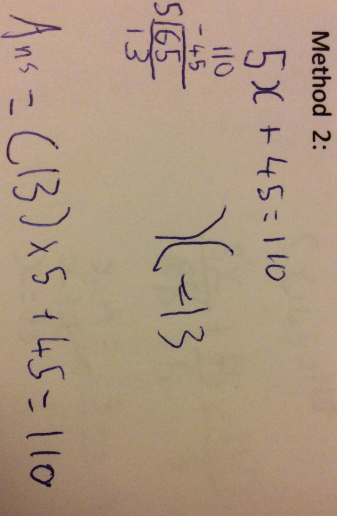 Method 2:
5x + 45 = 110
110
-45
5 65
13
x = 13
Ans = (13) x 5 + 45 = 110